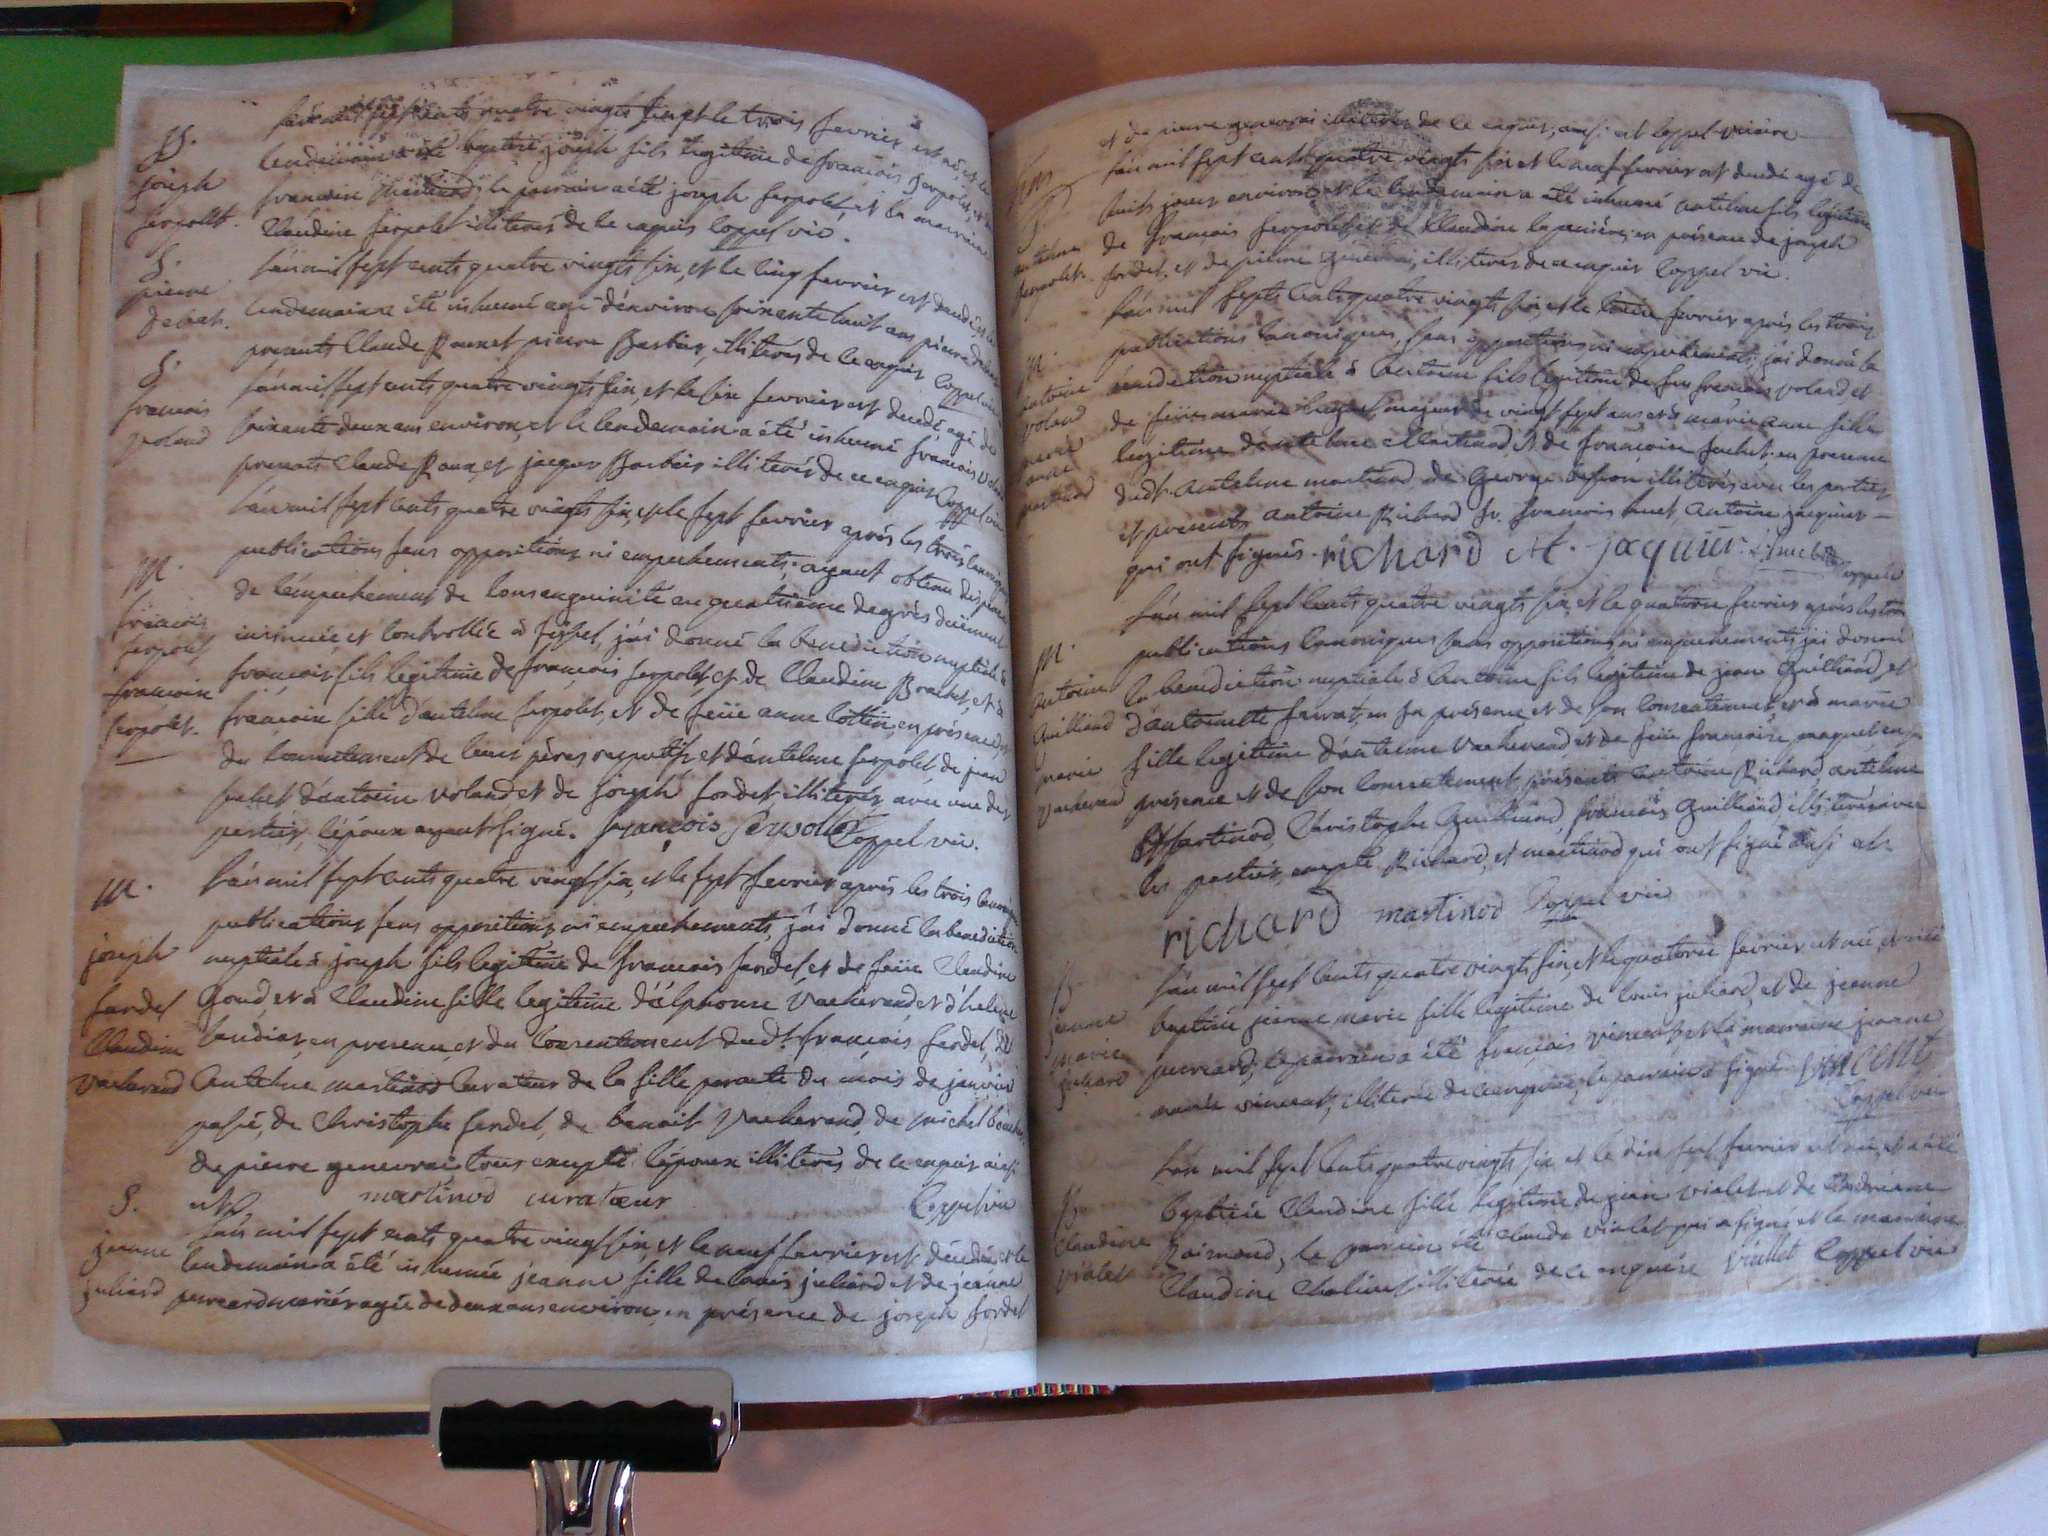 B.
joseph
serpollet.
l'an mil sept cents quatre vingts six et le trois fevrier est né et le
lendemain a été baptisé joseph fils legitime de françois serpolet, et de
françoise le parrain a été joseph serpolet, et la marraine
Claudine serpolet illiterés de ce enquis Coppel vic.
S.
pierre
l'an mil sept cents quatre vingts six, et le cinq fevrier est decedé, et le
lendemain a été inhumé agé d'environ soixante huit ans pierre
presents Claude Roux et pierre Barbier, illiterés de ce enquis Coppel vic
S.
françois
voland
l'an mil sept cents quatre vingts six, et le six fevrier est decedé, agé de
soixante deux ans environ, et le lendemain a été inhumé françois voland
presents Claude Roux, et jacques Barbier illiterés de ce enquis Coppel vic
M.
françois
serpolet
françoise
serpolet.
l'an mil sept cents quatre vingts six, et le sept fevrier après les trois canoniques
publications sans oppositions, ni empechements, ayant obtenu dispense
de l'empechement de consanguinité au quatrième degrés duement
insinuée et controllée à j'ai donné la benediction nuptiale à
françois fils legitime de françois serpolet, et de Claudine Brachet, et à
françoise fille d'antelme serpolet, et de feüe anne en présence, et
du consentement de leurs pères respectifs et d'antelme serpolet de jean
d'antoine voland, et de joseph fardel, illiterés avec une des
parties, l'époux ayant signé. françois Serpollet Coppel vic.
M.
joseph
fardel
Claudine
Vacherand
l'an mil sept cents quatre vingt six, et le sept fevrier après les trois canoniques
publications sans oppositions, ni empechements, j'ai donné la benediction
nuptiale à joseph fils legitime de françois fardel, et de feüe Claudine
Goud, et à Claudine fille legitime d'alphonse Vacherand, et d'helene
en presence et du consentement dudt. françois fardel, d'
antelme martinod curateur de la fille par acte du mois de janvier
passé, de Christophe fardel, de benoit Vacherand, de michel
de pierre genevrai tous excepté l'époux illiterés de ce enquis ainsi
est martinod curateur Coppel vic
S.
jeanne
juliard
l'an mil sept cents quatre vingt six, et le neuf fevrier est decedée et le
lendemain a été inhumée jeanne fille de louis juliard et de jeanne
agée de deux ans environ, en présence de joseph fardel
et de pierre genevrai illiterés de ce enquis, ainsi est Coppel vicaire
S.
antelme
serpolet.
l'an mil sept cents quatre vingts six, et le neuf fevrier est decedé agé de
huit jours environ, et le lendemain a été inhumé antelme fils legitime
de françois serpolet, et de Claudine en présence de joseph
fardel, et de pierre genevrai, illiterés de ce enquis Coppel vic.
M.
antoine
voland
marie
anne
martinod
l'an mil septs cents quatre vingts six et le treize fevrier après les trois
publications canoniques, sans oppositions, ni empechements, j'ai donné la
benediction nuptiale à antoine fils legitime de feu françois voland et
de feüe marie majeur de vingt sept ans et à marie anne fille
legitime d'antelme Martinod, et de françoise en presence
dudt. antelme martinod, de George illiterés avec les parties
et presents antoine Richard Sr. françois antoine jaquier
qui ont signés. richard A. jaquier. Coppel v
M.
antoine
Guilliand
marie
Vacherand
l'an mil sept cents quatre vingts six, et le quatorze fevrier après les trois
publications canoniques sans oppositions, ni empechements j'ai donné
la benediction nuptiale à Antoine fils legitime de jean Guilliand, et
d'antoinette en sa présence et de son consentement, et à marie
fille legitime d'antelme Vacherand, et de feüe françoise en sa
présence et de son consentement, présents antoine Richard, antelme
Martinod, Christophe Guilliand, françois Guilliand, illiterés avec
les parties, excepté Richard, et martinod qui ont signé ainsi est
richard martinod Coppel vic
B.
jeanne
marie
juliard
l'an mil sept cents quatre vingts six, et le quatorze fevrier est née, et a été
baptisée jeanne marie fille legitime de louis juliard, et de jeanne
le parrain a été françois vincent, et la marraine jeanne
marie vincent, illiterée de ce enquise, le parrain a signé vincent
Coppel vic
B.
Claudine
violet
l'an mil sept cents quatre vingts six et le dix sept fevrier est née, et a été
baptisée Claudine fille legitime de jean violet et de
Raimond, le parrain été Claude violet qui a signé et la marraine
Claudine illiterée de ce enquise Viollet Coppel vic